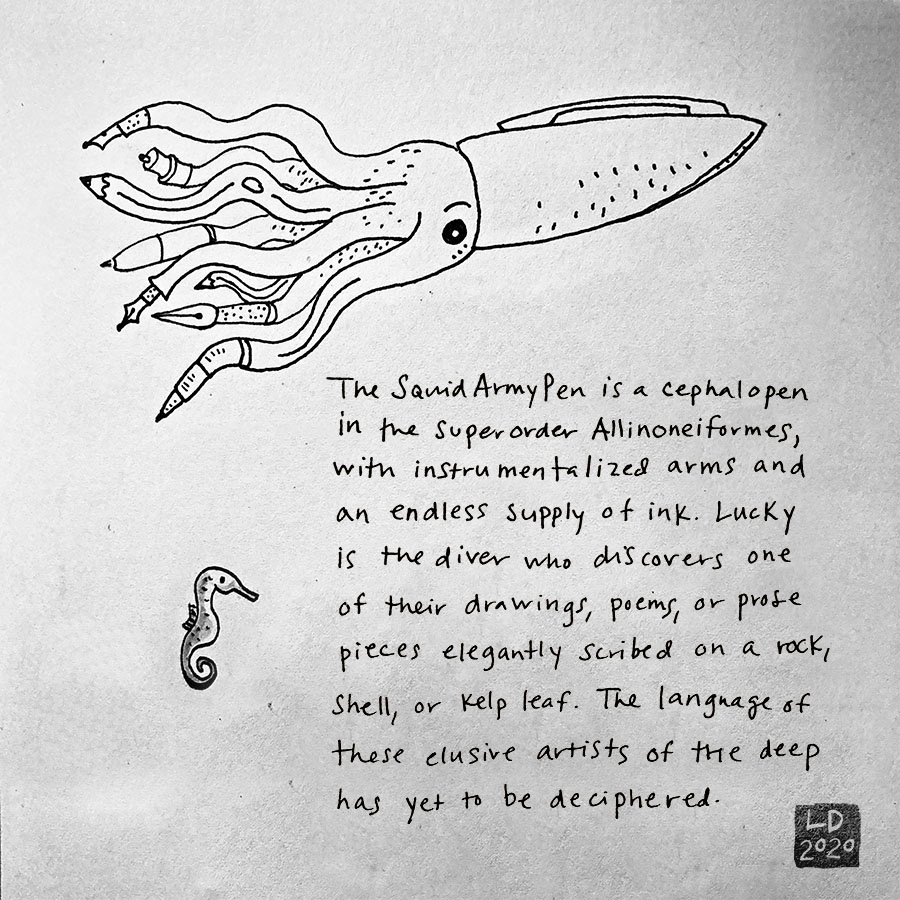 The SquidArmyPen is a cephalopen
in the superorder Allinoneiformes,
with instrumentalized arms and
an endless supply of ink. Lucky
is the diver who discovers one
of their drawings, poems, or prose
pieces elegantly scribed on a rock,
shell, or kelp leaf. The language of
these elusive artists of the deep
has yet to be deciphered.
LD
2020